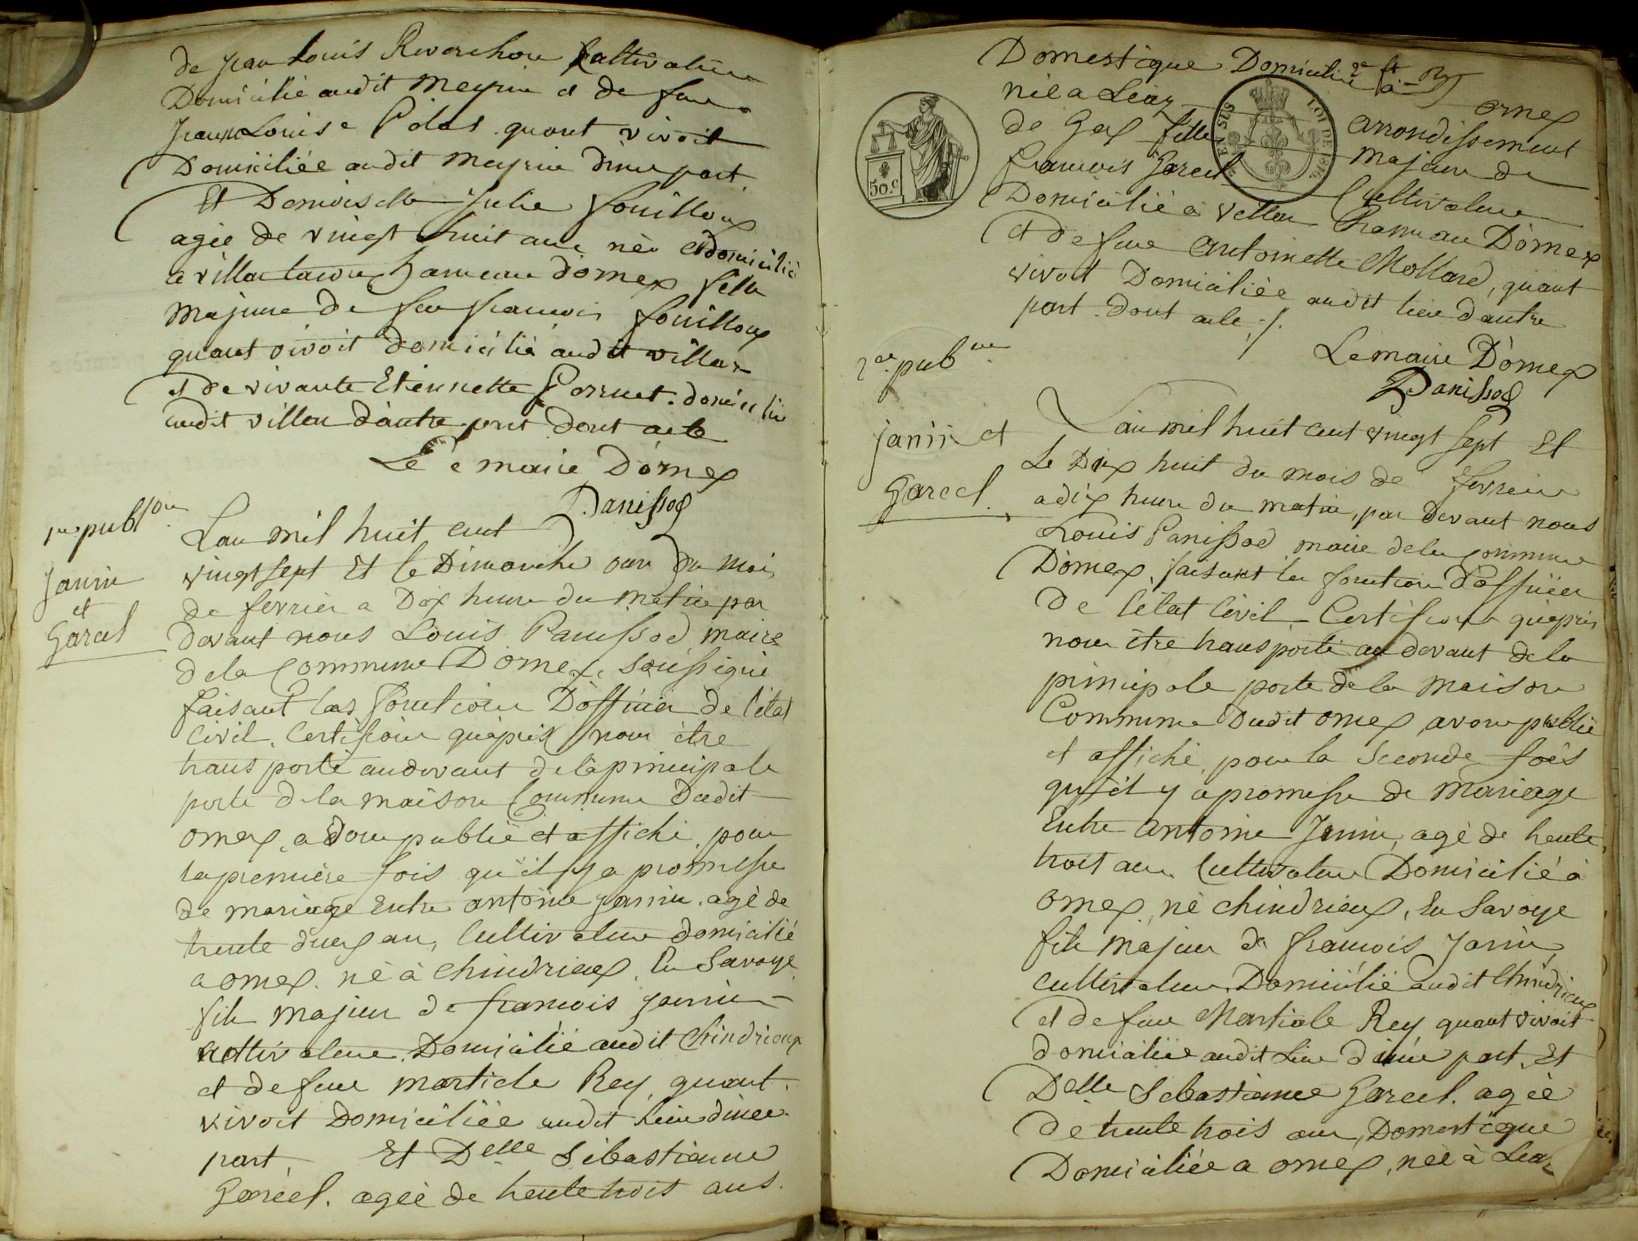 de Jean Louis Reverchon Cultivateur
Domicilié audit Meyrin et de feue
Jeanne Louise Colas quant vivoit
Domiciliée audit Meyrin d'une part
Et Demoiselle Julie fouilloux
agée de vingt huit ans née et domicilié
a villar hameau d'ornex fille
Majeure de feu francois fouilloux
quant vivoit domicilié audit villar
et de vivante Etiennette domicilié
audit villar d'autre part dont acte
Le maire D'ornex
Panissod
1re publion
Janin
et
Garcel
L'an mil huit cent
vingt sept Et le Dimanche onze du mois
de fevrier a Dix heure du matin par
devant nous Louis Panissod maire
de la Commune D'ornex, soussigné
faisant les fonction D'officier de l'état
Civil. Certifions qu'après nous être
transporté audevant de la principale
porte de la maison Commune Dudit
ornex, avons publié et affiché, pour
la première fois qu'il y a promesse
de mariage Entre antoine Janin, agé de
trente deux ans, Cultivateur domicilié
a ornex, né à Chindrieux, En Savoye
fils majeur de francois Janin
Cultivateur, Domicilié audit Chindrieux
et de feue Martiale Rey, quant
vivoit Domiciliée audit lieu d'une
part Et Delle Sébastianne
Garcel, agée de trente trois ans.
Domestique Domiciliée à ornex
née a Léaz arrondissement
de Gex fille Majeure de
francois Garcel Cultivateur
Domicilié à villar hameau D'ornex
et de feue antoinette Mollard, quant
vivoit Domiciliée audit lieu d'autre
part. dont acte ./.
Le maire D'ornex
Panissod
50.c
LOI DE 1816
2de pubon
Janin et
Garcel.
L'an mil huit cent vingt sept Et
Le Dix huit du mois de fevrier
a dix heure du matin, par devant nous
Louis Panissod maire de la Commune
D'ornex, faisant les fonction D'officier
De l'état Civil. Certifions qu'après
nous être transporté au devant de la
principale porte de la maison
Commune Dudit ornex, avons publié
et affiché, pour la Seconde fois
qu'il y a promesse de Mariage
Entre antoine Janin, agé de trente
trois ans Cultivateur Domicilié à
ornex, né Chindrieux, En Savoye
fils majeur de francois Janin
cultivateur Domicilié audit Chindrieux
et de feue Martiale Rey quant vivoit
domiciliée audit Lieu d'une part, Et
Delle Sebastianne Garcel. agée
de trente trois ans, Domestique
Domiciliée a ornex, née à Leaz